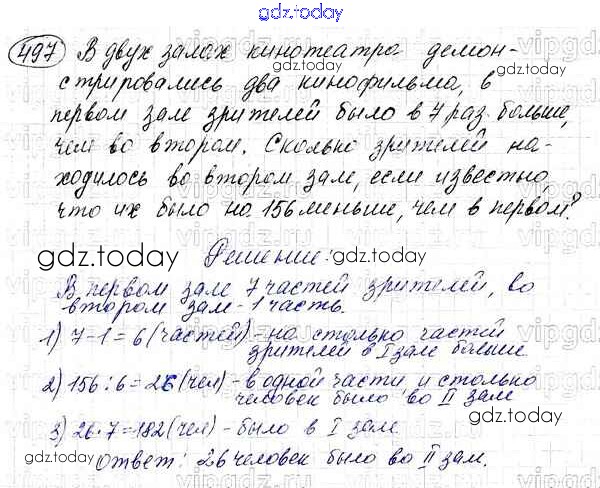 gdz.today
497 В двух залах кинотеатра демон-
стрировались два кинофильма, в
первом зале зрителей было в 7 раз больше,
чем во втором. Сколько зрителей на-
ходилось во втором зале, если известно
что их было на 156 меньше, чем в первом?
gdz.today Решение: gdz.today
В первом зале 7 частей зрителей, во
втором зале - 1 часть.
1) 7-1=6 (частей) - на столько частей
зрителей в I зале больше
2) 156:6=26 (чел) - в одной части и столько
человек было во II зале
3) 26·7=182 (чел) - было в I зале
gdz.today
Ответ: 26 человек было во II зал.